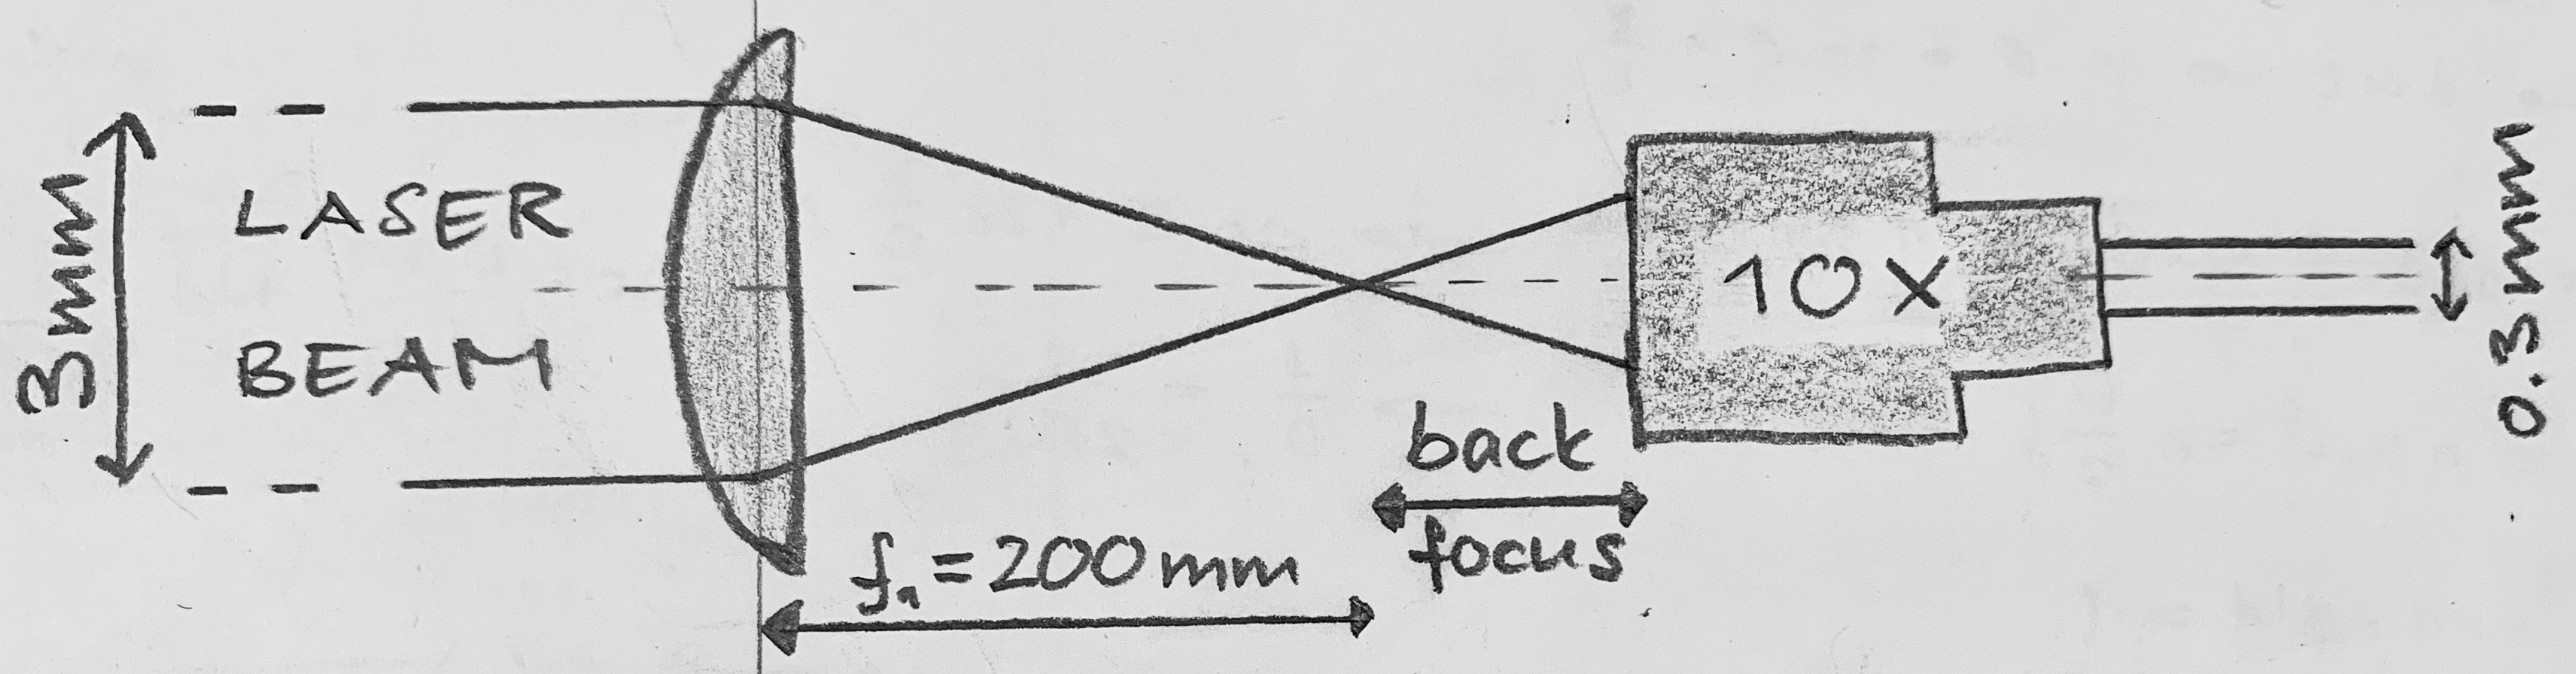 3mm
LASER
BEAM
f₁=200mm
back
focus
10x
0.3mm